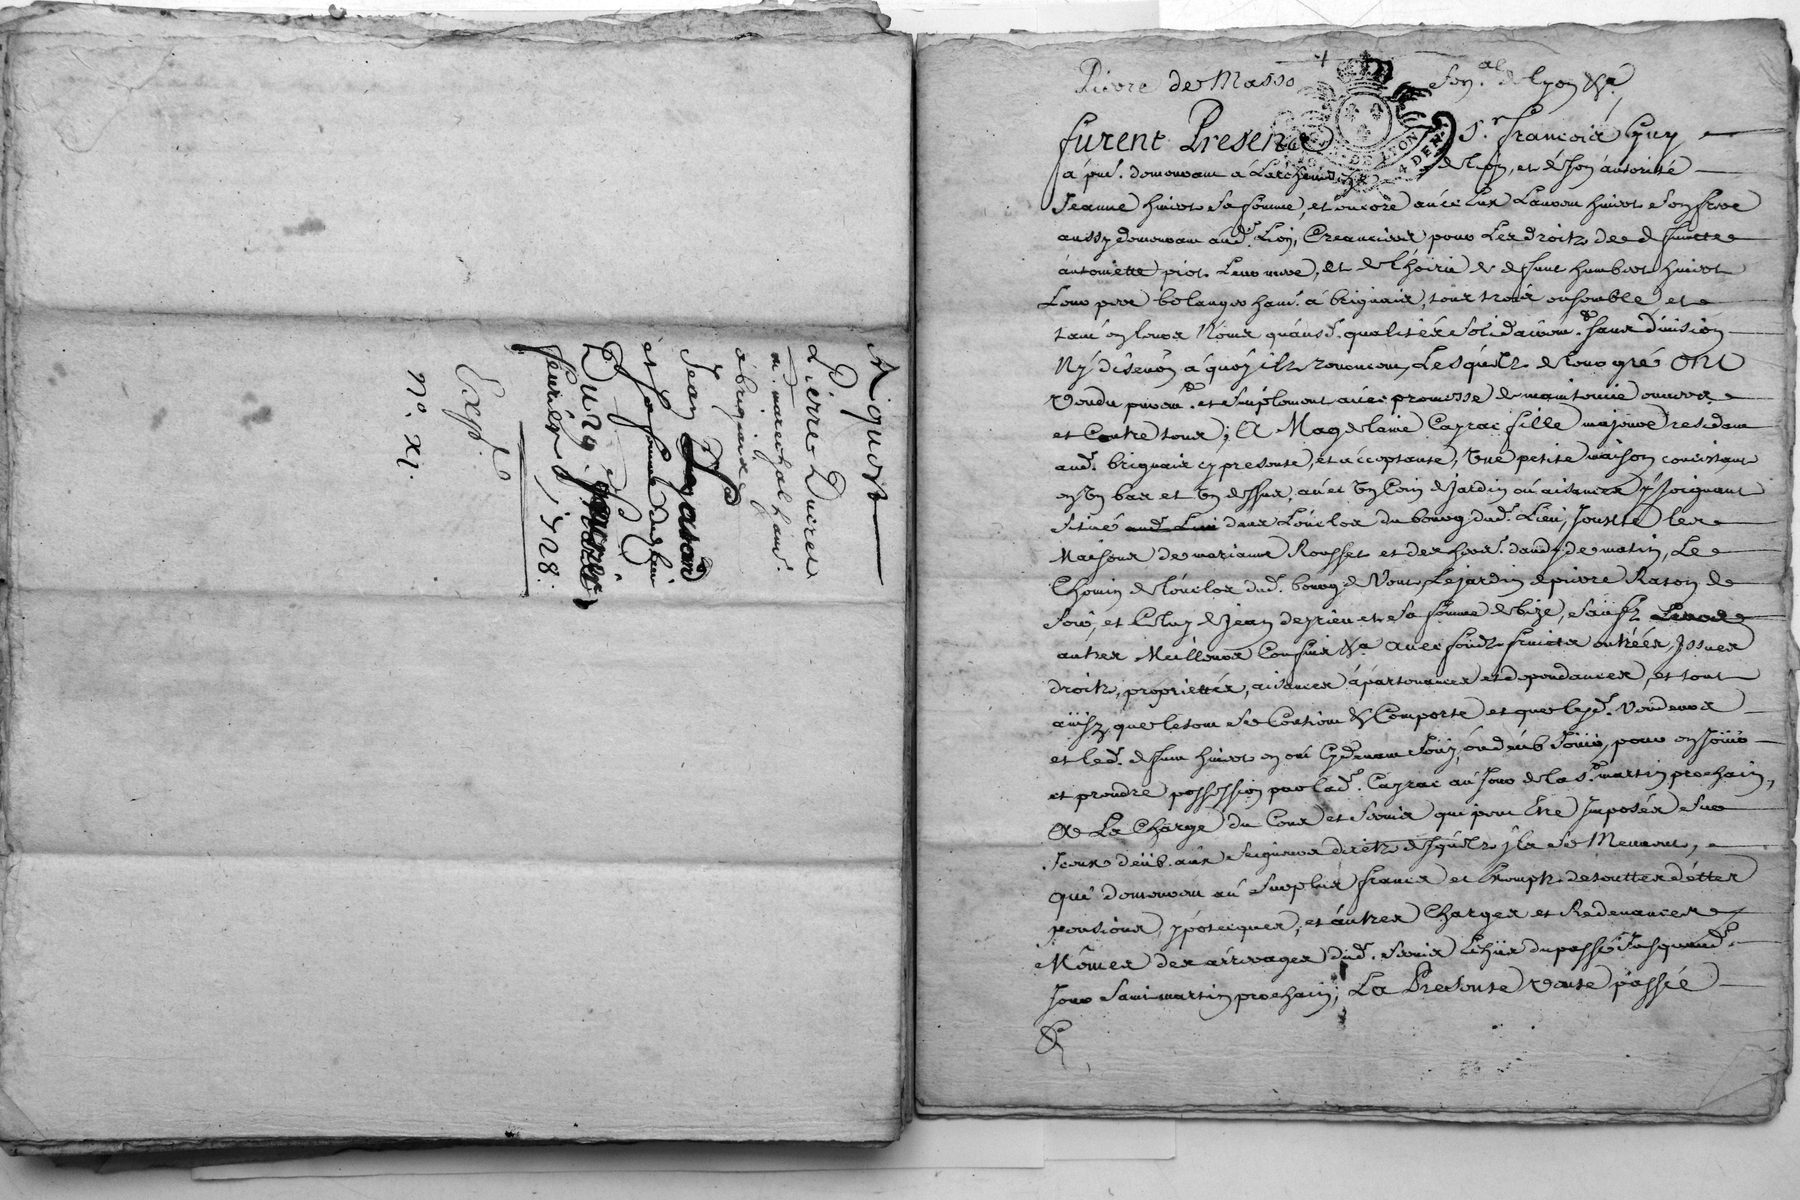 Aquest
Pierre Duret
me. marechal hant.
a brignais
Jean
et sa femme dud. lieu
Du 29.
fevrier 1728.
Exp.
n.o XI.
Pierre de Masso Sen.al de Lyon &a
furent Presens Sr. francois Guy
á pnt. demeurant á de Lyon, et de son áutorité
Jeanne huivet sa femme, et encore avec eux Laurent huivet son frere
aussy demeurant aud. Lion, Creanciers pour les droits de deffuncte
ántoinette piot leur mere, et de l'hoirie de deffunt humbert huivet
leur pere bolanger hant. á brignais, tous trois ensemble et
tant en leurs Noms qu'ausd. qualités solidairemt. sans division
Ny discution á quoy ils renoncent, Lesquels de leur gré ont
Vendu puremt. et simplement avec promesse de maintenir envers
et Contre tous; A Magdelaine Cayrac fille majeure residant
aud. brignais cy presente, et acceptante, Une petite maison consistant
en Un bas et Un dessus, avec Un Coin de Jardin ou aisances y Joignant
Situé dans L'enclos du bourg dud. Lieu, Jouxte les
Maisons de mariane Rousset et des hoirs. de matin, Le
Chemin de l'enclos dud. bourg de Vent, Le jardin de pierre Raton de
Soir, et Celuy de Jean deyrieu et sa femme de bize, sauf
autres Meilleurs Confins &a. avec fonds fruicts entrées, Issues
droits, proprietés, aisances ápartenances et dependances, et tout
ainsy que le tout se Contient & Comporte et que lesd. Vendeurs
et led. deffunt huivet en ont Cydevant Joüy, ou deub Joüir, pour en Joüir
et prendre possession par lad. Cayrac au Jour de la st. martin prochain,
A La Charge du Cens et servis qui peut Etre Imposés sur
Iceux deüb aux Seigneurs directs desquels jls se Meuvent,
qui demeurent au surplus francs et Exempts de touttes dettes
pensions, ypoteques, et áutres Charges et Redevances
Mêmes des arrerages dud. servis Echus du passé Jusques aud.
Jour Saint martin prochain; La Presente Vente passée